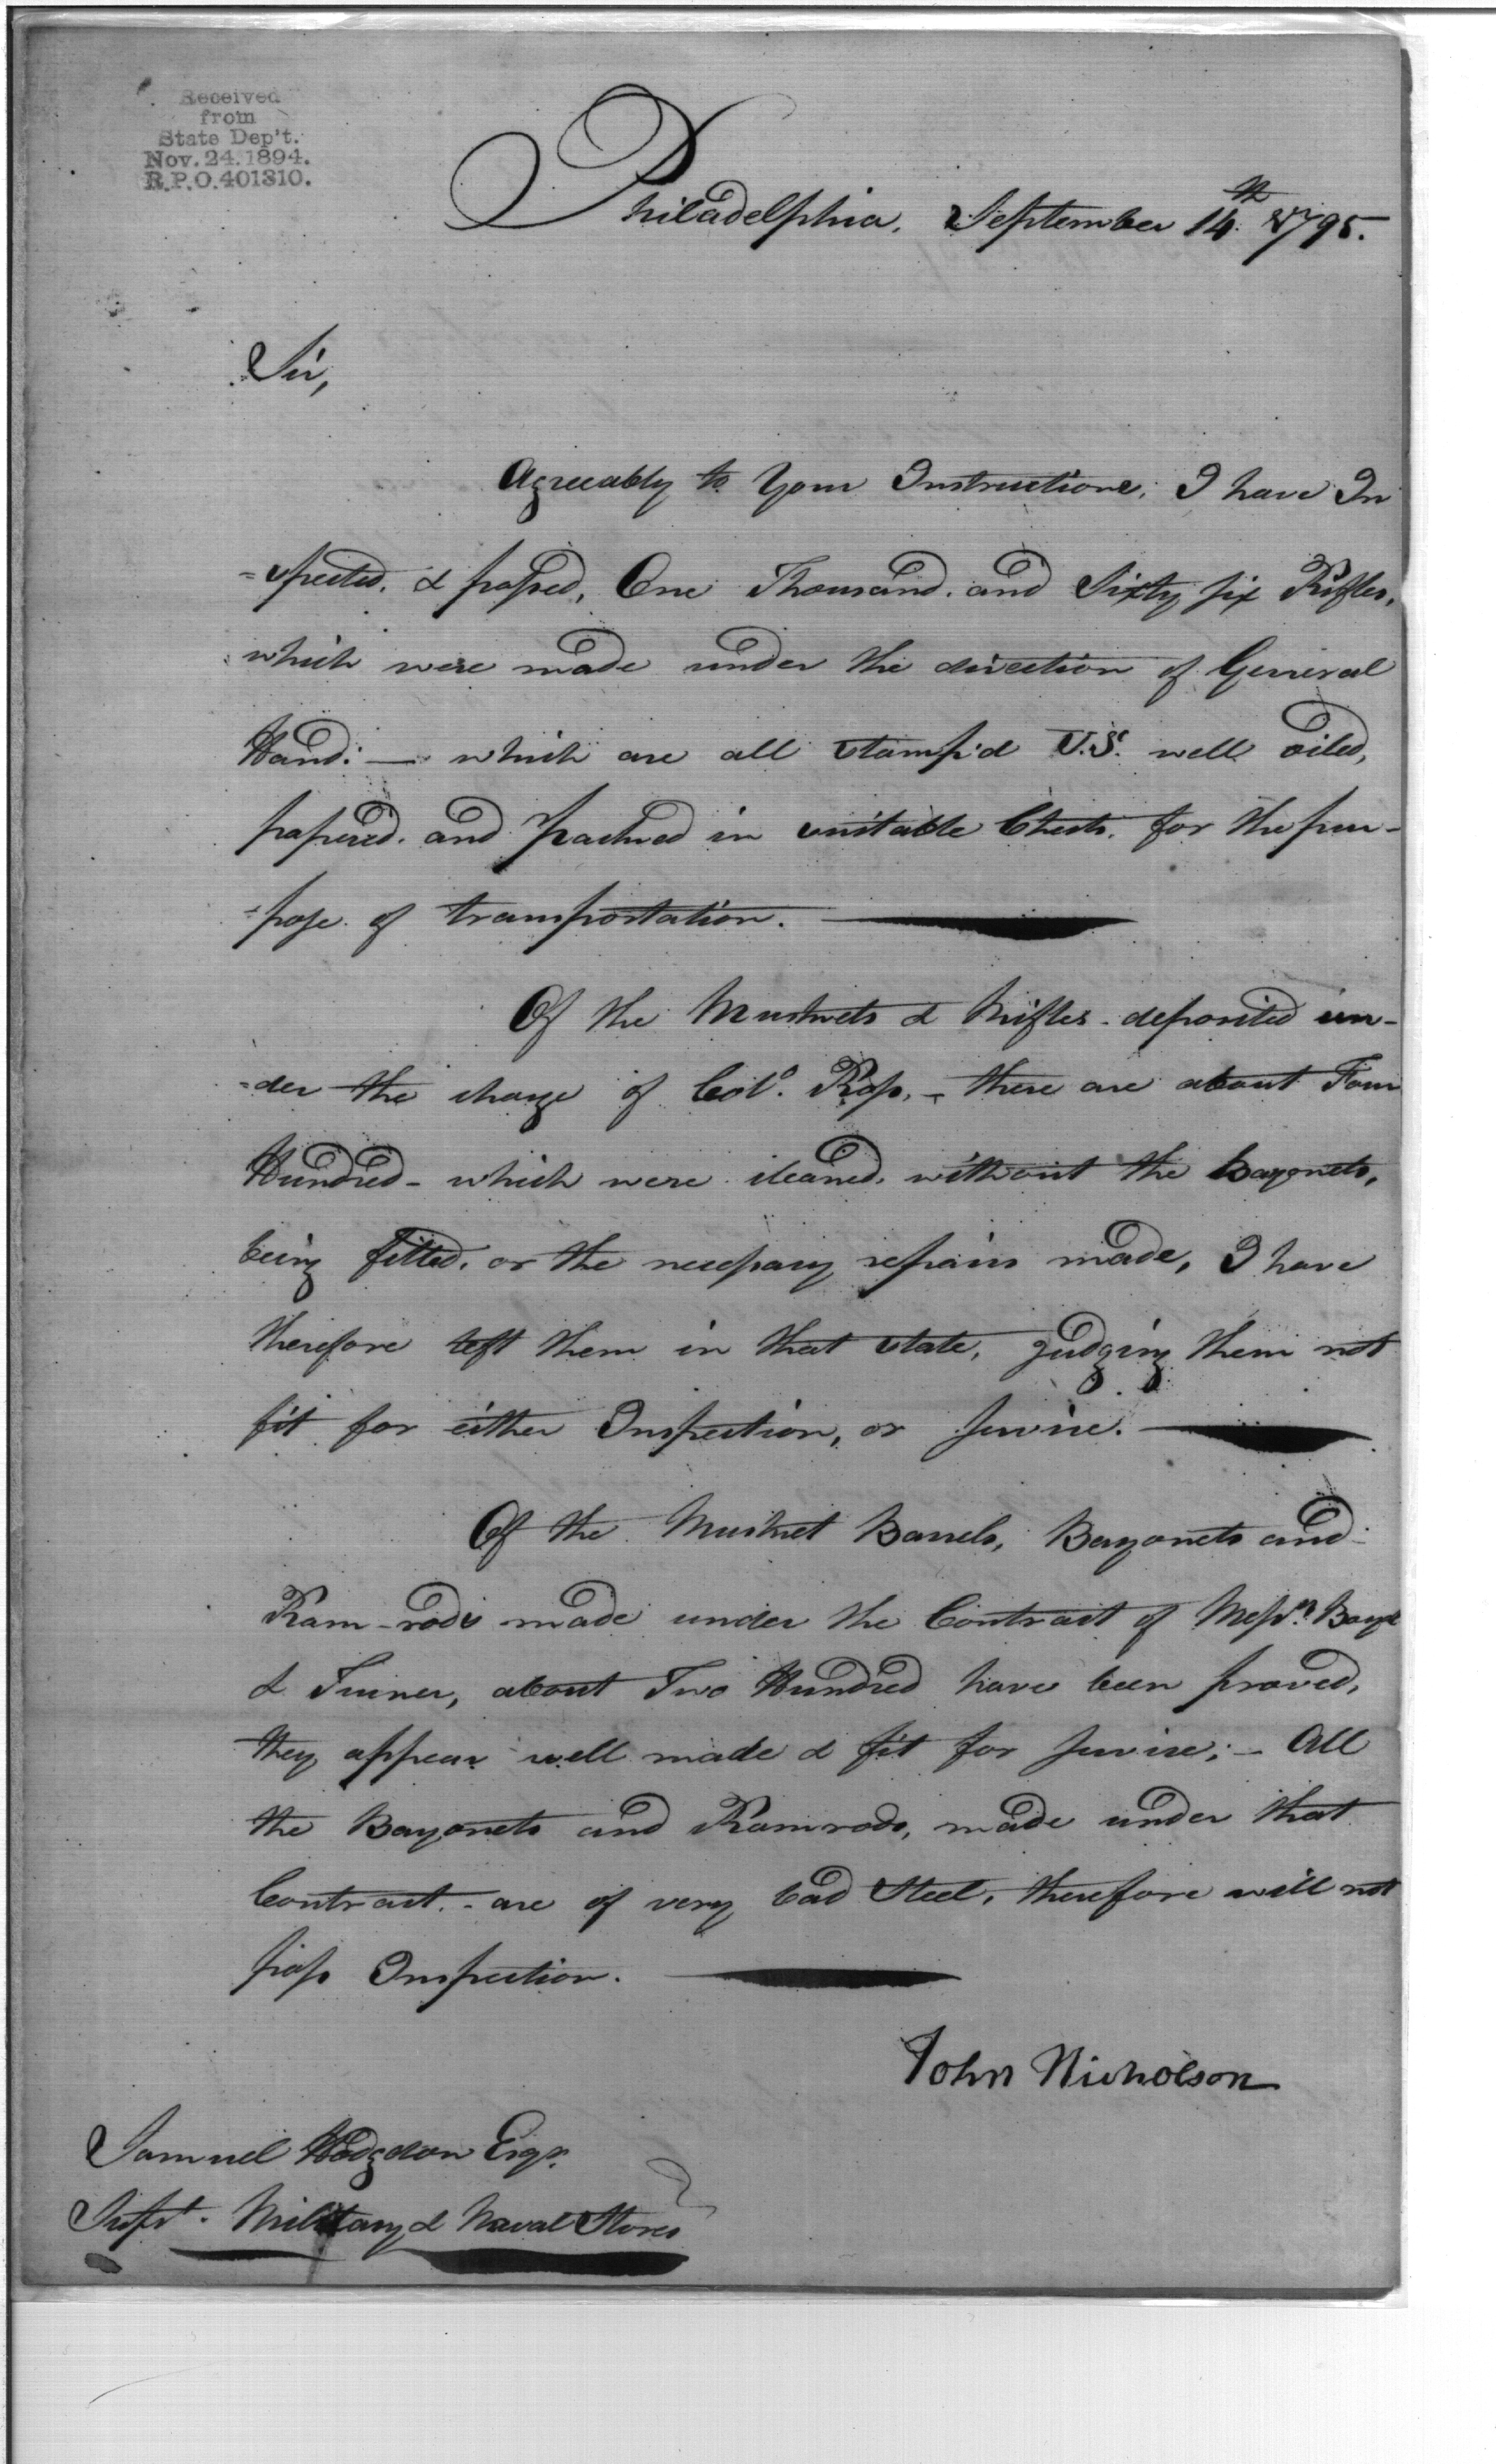 Received
from
State Dep't.
Nov. 24. 1894.
R.P.O. 401310.
Philadelphia, September 14th 1795.
Sir,
Agreeably to Your Instructions, I have In
=spected, & passed, One Thousand and Sixty six Rifles,
which were made under the direction of General
Hand: — which are all stamp'd U.S. well oiled,
papered and packed in suitable Chests, for the pur-
-pose of transportation. —
Of the Muskets & Rifles - deposited un-
=der the charge of Colo. Ross, - there are about Four
Hundred - which were cleaned, without the bayonets,
being fitted, or the necessary repairs made, I have
therefore left them in that state, judging them not
fit for either Inspection, or Service. —
Of the Musket Barrels, Bayonets and
Ram-rods made under the Contract of Messrs. Boyd
& Turner, about Two Hundred have been proved,
they appear well made & fit for Service; - All
the Bayonets and Ramrods, made under that
Contract - are of very bad Steel, therefore will not
pass Inspection. —
John Nicholson
Samuel Hodgdon Esqr.
Supt. Military & Naval Stores